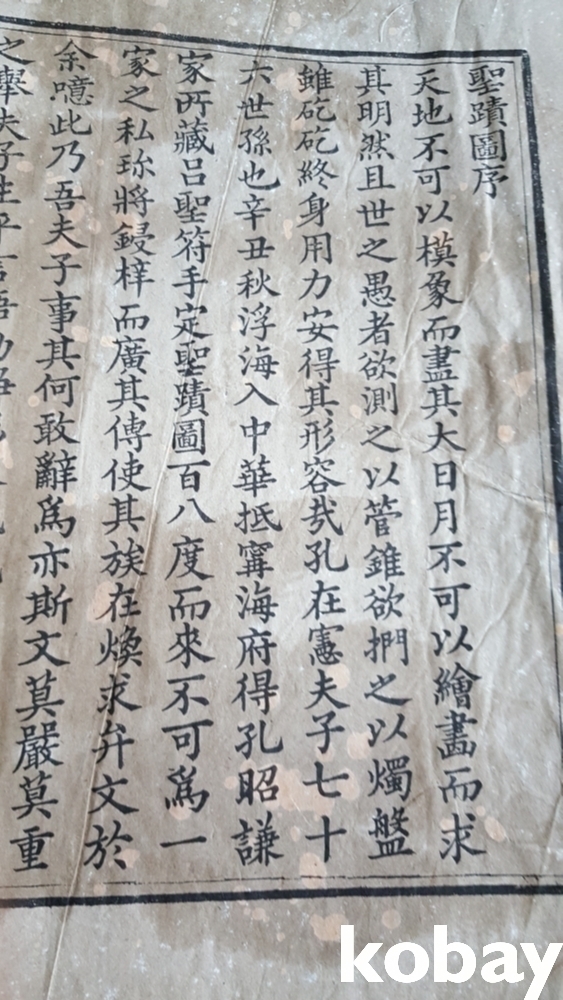 聖蹟圖序
天地不可以模象而盡其大日月不可以繪畵而求
其明然且世之愚者欲測之以管錐欲捫之以燭盤
雖矻矻終身用力安得其形容㢤孔在憲夫子七十
六世孫也辛丑秋浮海入中華抵寗海府得孔昭謙
家所藏呂聖符手定聖蹟圖百八度而來不可爲一
家之私珎將鋟梓而廣其傳使其族在煥求弁文於
余噫此乃吾夫子事其何敢辭爲亦斯文莫嚴莫重
之擧夫子生平言語
kobay